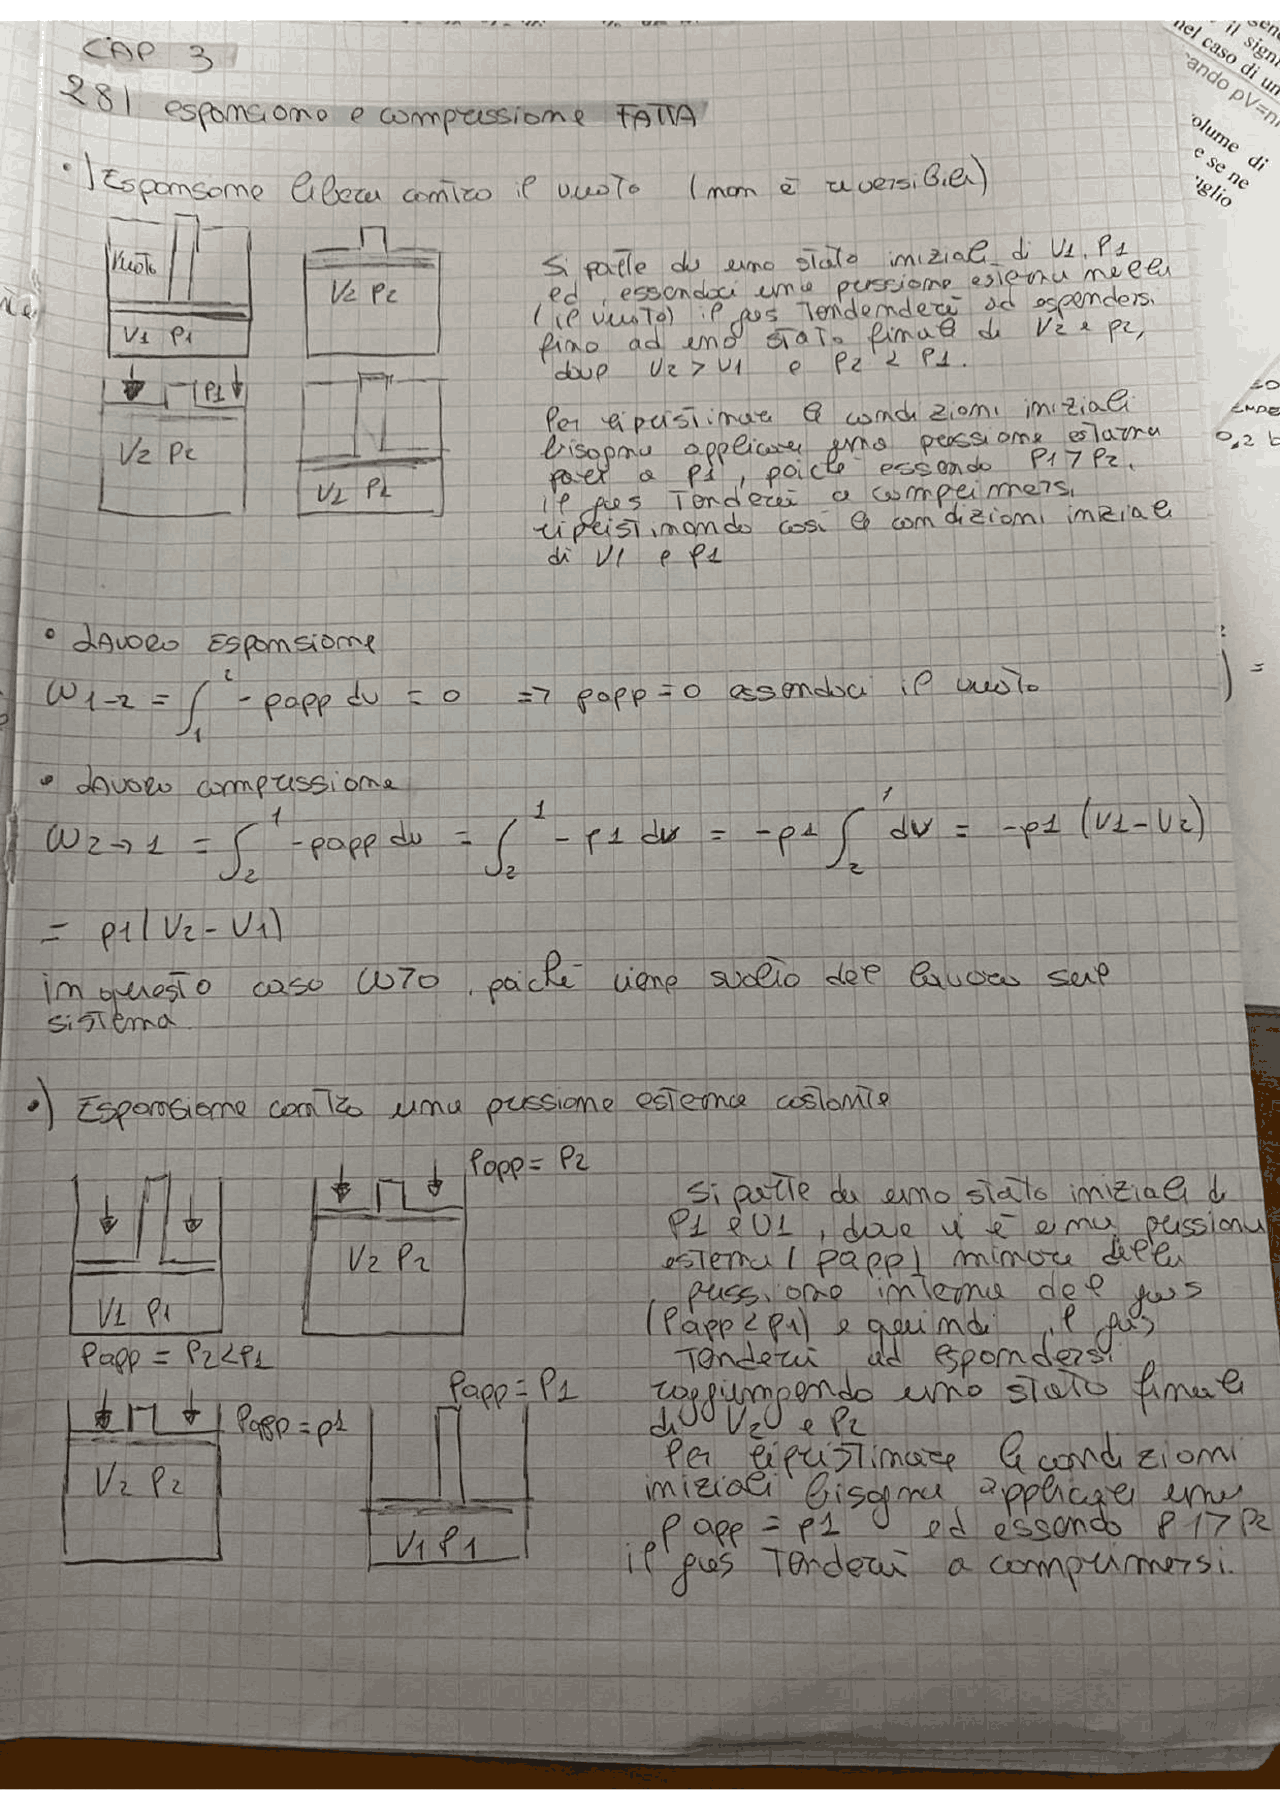 CAP 3
281 espansione e compressione FATTA
•) Espansione libera contro il vuoto (non è reversibile)
Vuoto
V1 P1
V2 P2
Si parte da uno stato iniziale di V1, P1
ed, essendoci una pressione esterna nulla
(il vuoto) il gas Tendenderà ad espandersi
fino ad uno stato finale di V2 e p2,
dove V2 > V1 e P2 < P1.
P1
V2 P2
V1 P1
Per ripristinare le condizioni iniziali
bisogna applicare una pressione esterna
pari a P1, poiché essendo P1 > P2,
il gas Tenderà a comprimersi
ripristinando così le condizioni iniziali
di V1 e P1
• Lavoro Espansione
W1-2 = ∫₁² - papp dv = 0 => papp = 0 essendoci il vuoto
• Lavoro compressione
W2→1 = ∫₂¹ - papp dv = ∫₂¹ - p1 dv = -p1 ∫₂¹ dv = -p1 (V1 - V2)
= p1 (V2 - V1)
in questo caso W>0, poiché viene svolto del lavoro sul
sistema
•) Espansione contro una pressione esterna costante
Papp = P2
V1 P1
V2 P2
Papp = P2<P1
Si parte da uno stato iniziale di
P1 e V1, dove vi è una pressione
esterna (papp) minore della
pressione interna del gas
(Papp < p1) e quindi il gas
Tenderà ad espandersi
raggiungendo uno stato finale
di V2 e P2
Papp = P1
Papp = p1
V2 P2
V1 P1
Per ripristinare le condizioni
iniziali bisogna applicare una
Papp = p1 ed essendo P1 > P2
il gas Tenderà a comprimersi.
nel caso di un
ando pV=n
olume di
e se ne
iglio
0,2 b